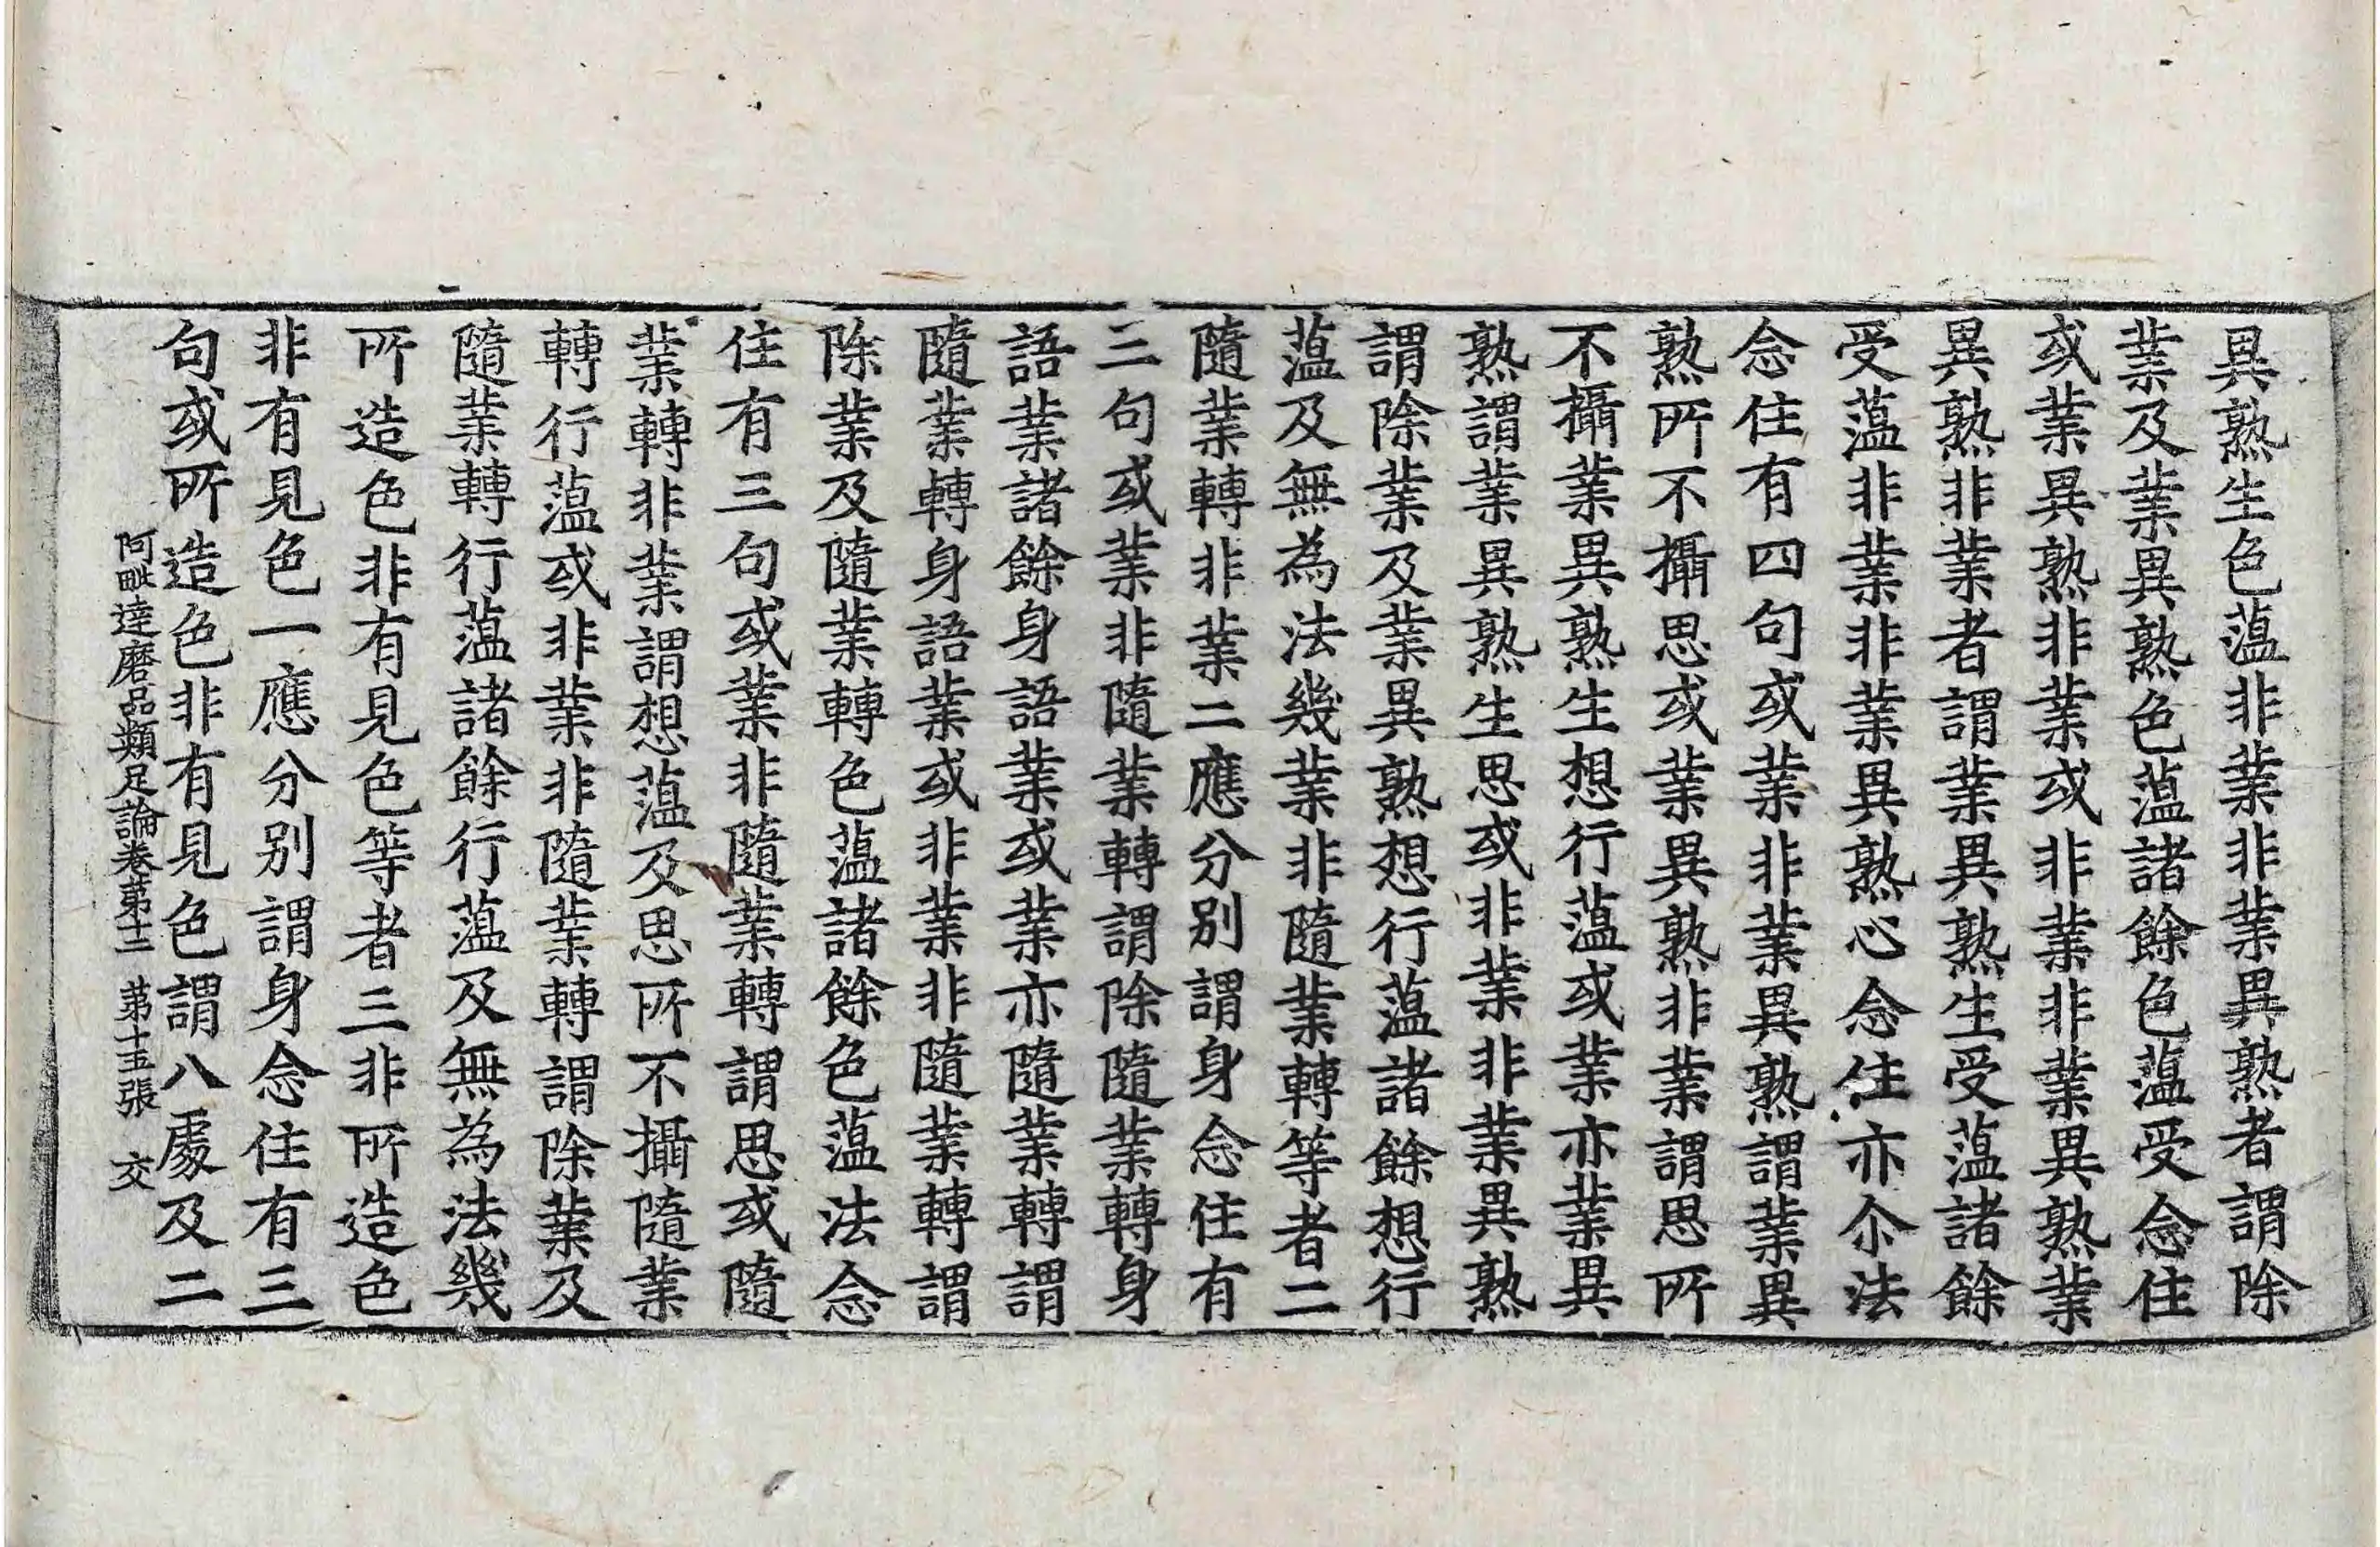 異熟生色蕰非業非業異熟者謂除
業及業異熟色蕰諸餘色蕰受念住
或業異熟非業或非業非業異熟業
異熟非業者謂業異熟生受蕰諸餘
受蕰非業非業異熟心念住亦尒法
念住有四句或業非業異熟謂業異
熟所不攝思或業異熟非業謂思所
不攝業異熟生想行蕰或業亦業異
熟謂業異熟生思或非業非業異熟
謂除業及業異熟想行蕰諸餘想行
蕰及無為法幾業非隨業轉等者二
隨業轉非業二應分別謂身念住有
三句或業非隨業轉謂除隨業轉身
語業諸餘身語業或業亦隨業轉謂
隨業轉身語業或非業非隨業轉謂
除業及隨業轉色蕰諸餘色蕰法念
住有三句或業非隨業轉謂思或隨
業轉非業謂想蕰及思所不攝隨業
轉行蕰或非業非隨業轉謂除業及
隨業轉行蕰諸餘行蕰及無為法幾
所造色非有見色等者三非所造色
非有見色一應分別謂身念住有三
句或所造色非有見色謂八處及二
阿毗達磨品類足論卷第十二　第十五張　交